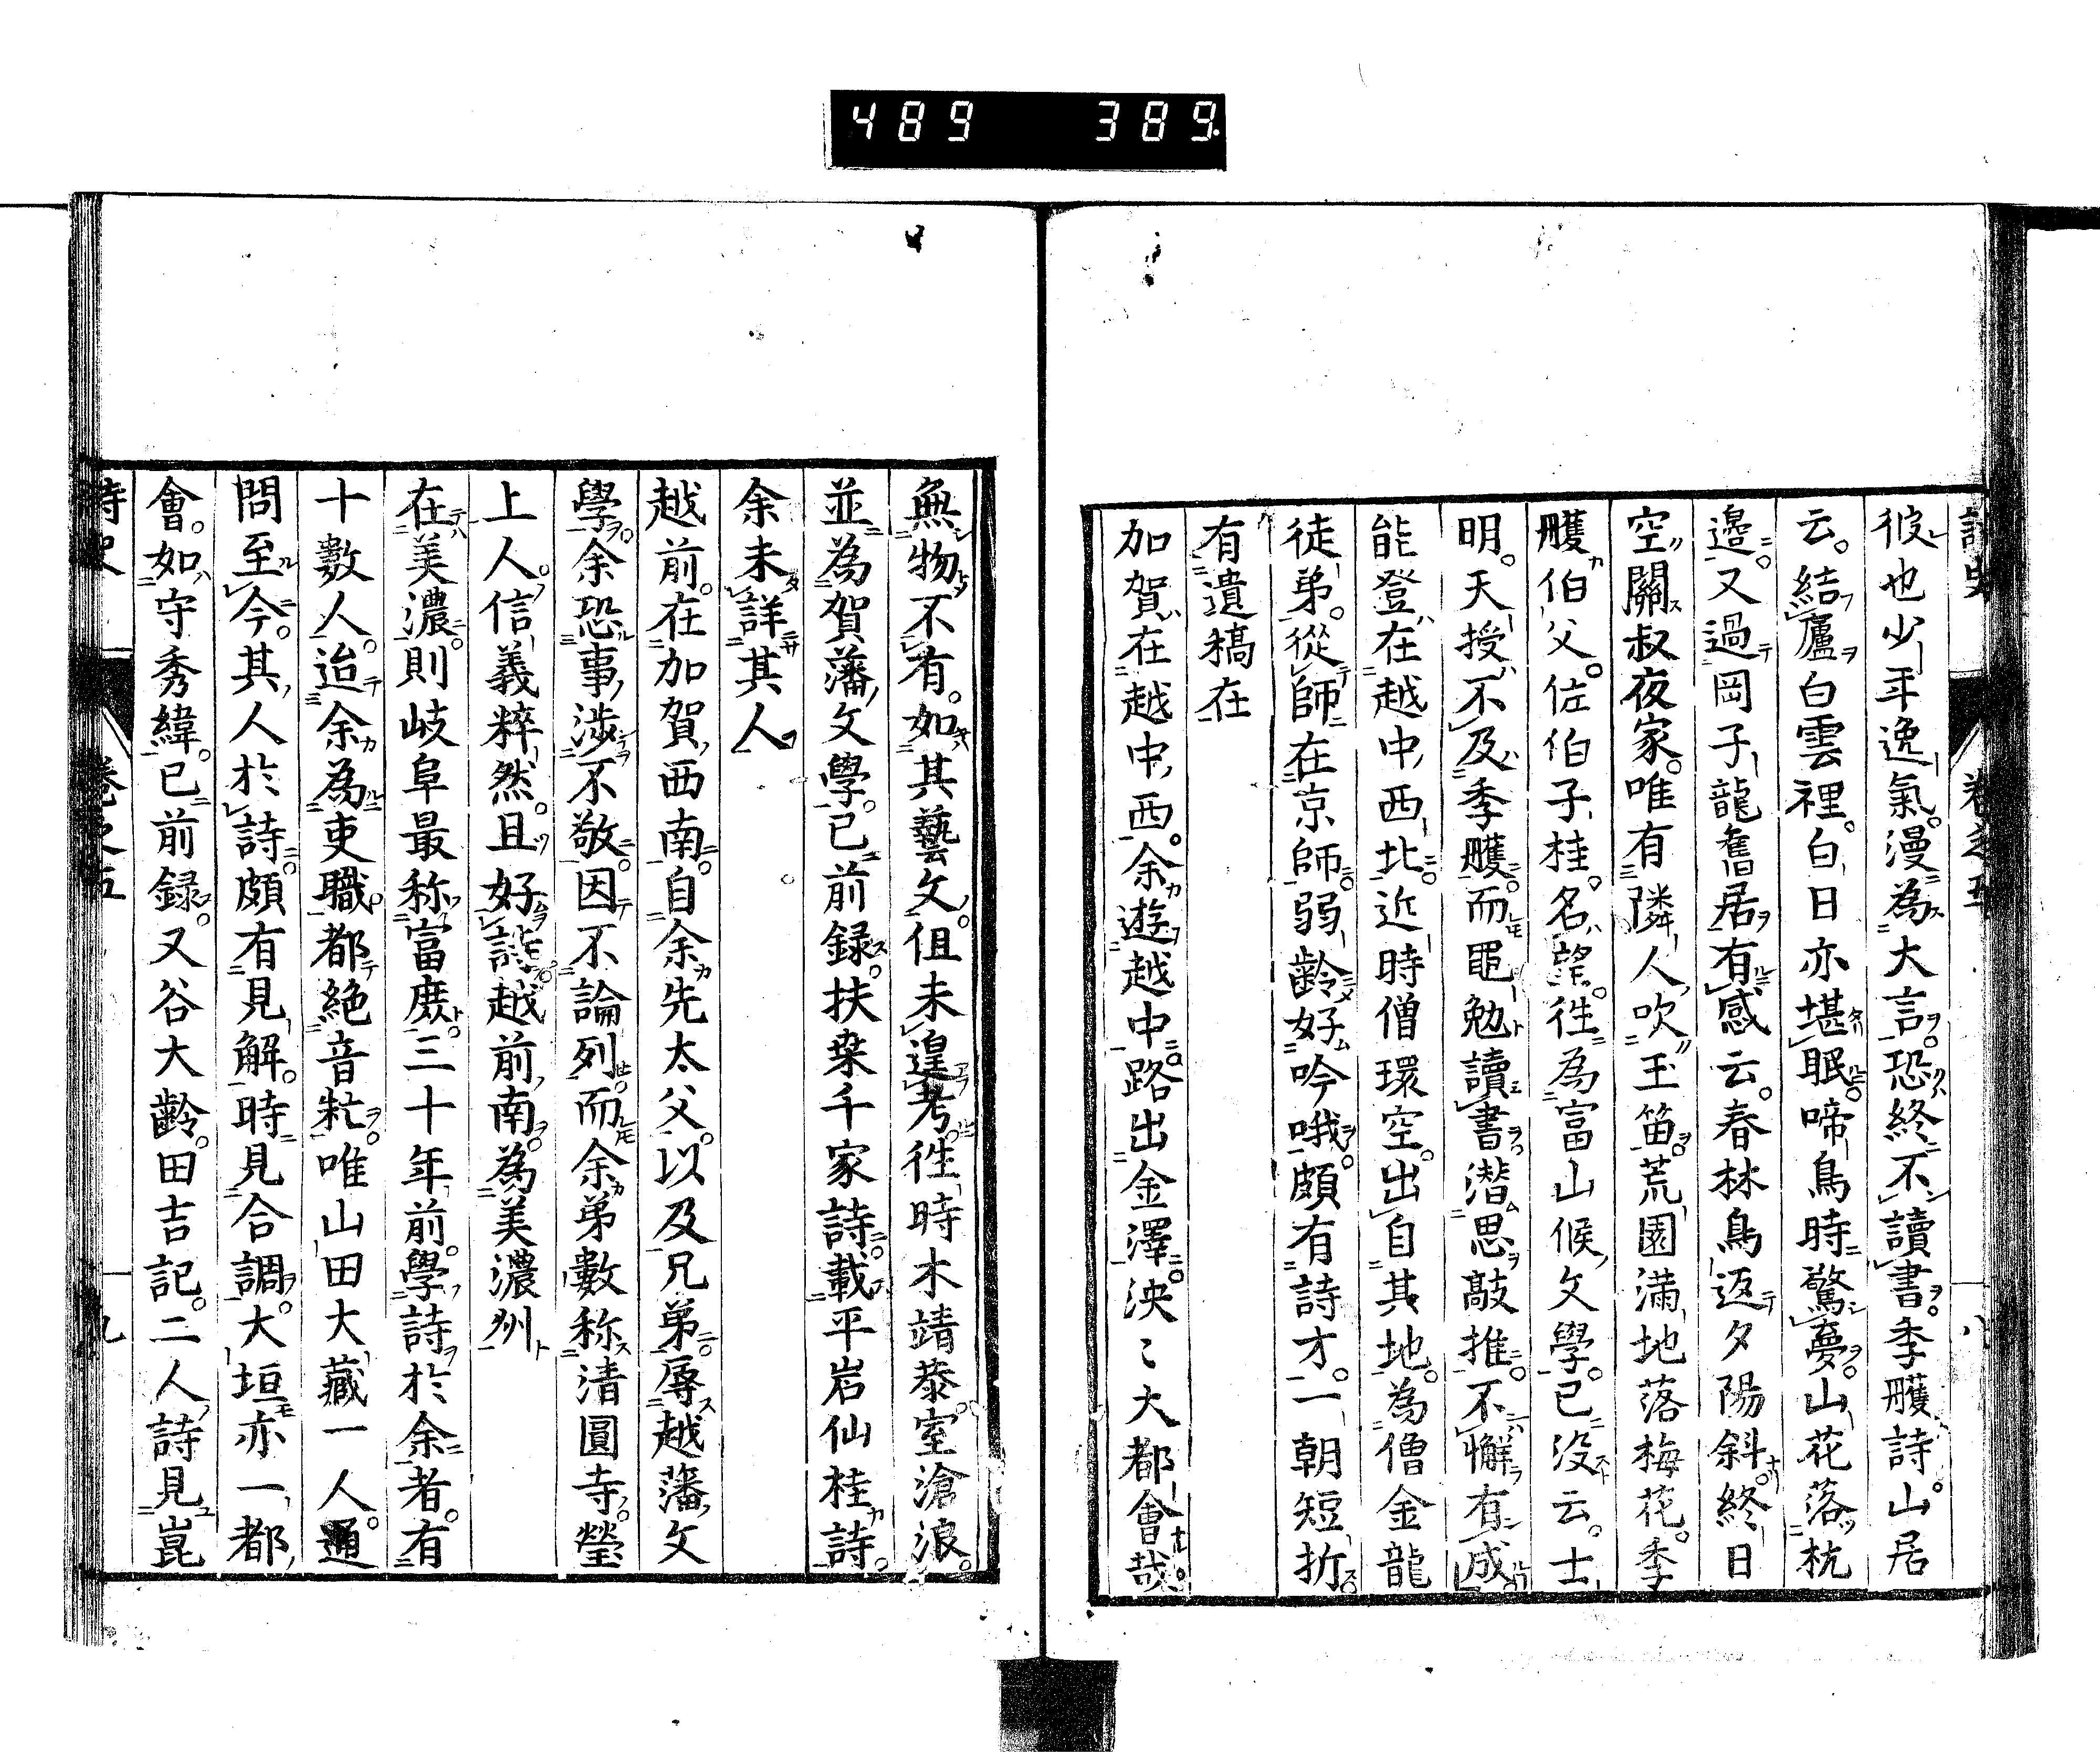 489 389
彼也少年逸氣。漫為大言。恐終不讀書。季雘詩。山居
云。結廬白雲裡。白日亦堪眠。啼鳥時驚夢。山花落枕
邊。又過岡子龍舊居有感云。春林鳥返夕陽斜。終日
空關叔夜家。唯有隣人吹玉笛。荒園滿地落梅花。季
雘伯父。佐伯子桂。名望。徃為富山候文學。已没云。士
明。天授不及季雘。而黽勉讀書。潜思敲推。不懈有成
能登在越中西北。近時僧環空。出自其地。為僧金龍
徒弟。從師在京師。弱齡好吟哦。頗有詩才。一朝短折
有遺稿在
加賀在越中西。余遊越中。路出金澤。泱〻大都會哉。
無物不有。如其藝文。伹未遑考。徃時木靖恭。室滄浪。
並為賀藩文學。已前録。扶桒千家詩。載平岩仙桂詩。
余未詳其人
越前。在加賀西南。自余先太父。以及兄弟。辱越藩文
學。余恐事涉不敬。因不論列。而余弟數称清圓寺。瑩
上人。信義粹然。且好詩。越前南。為美濃州
在美濃。則岐阜最称富庶。三十年前。學詩於余者。有
十數人。迨余為吏職。都絶音耗。唯山田大藏一人。通
問至今。其人於詩。頗有見解。時見合調。大垣亦一都
會。如守秀緯。已前録。又谷大齡。田吉記。二人詩見崑
詩史 卷之五 九